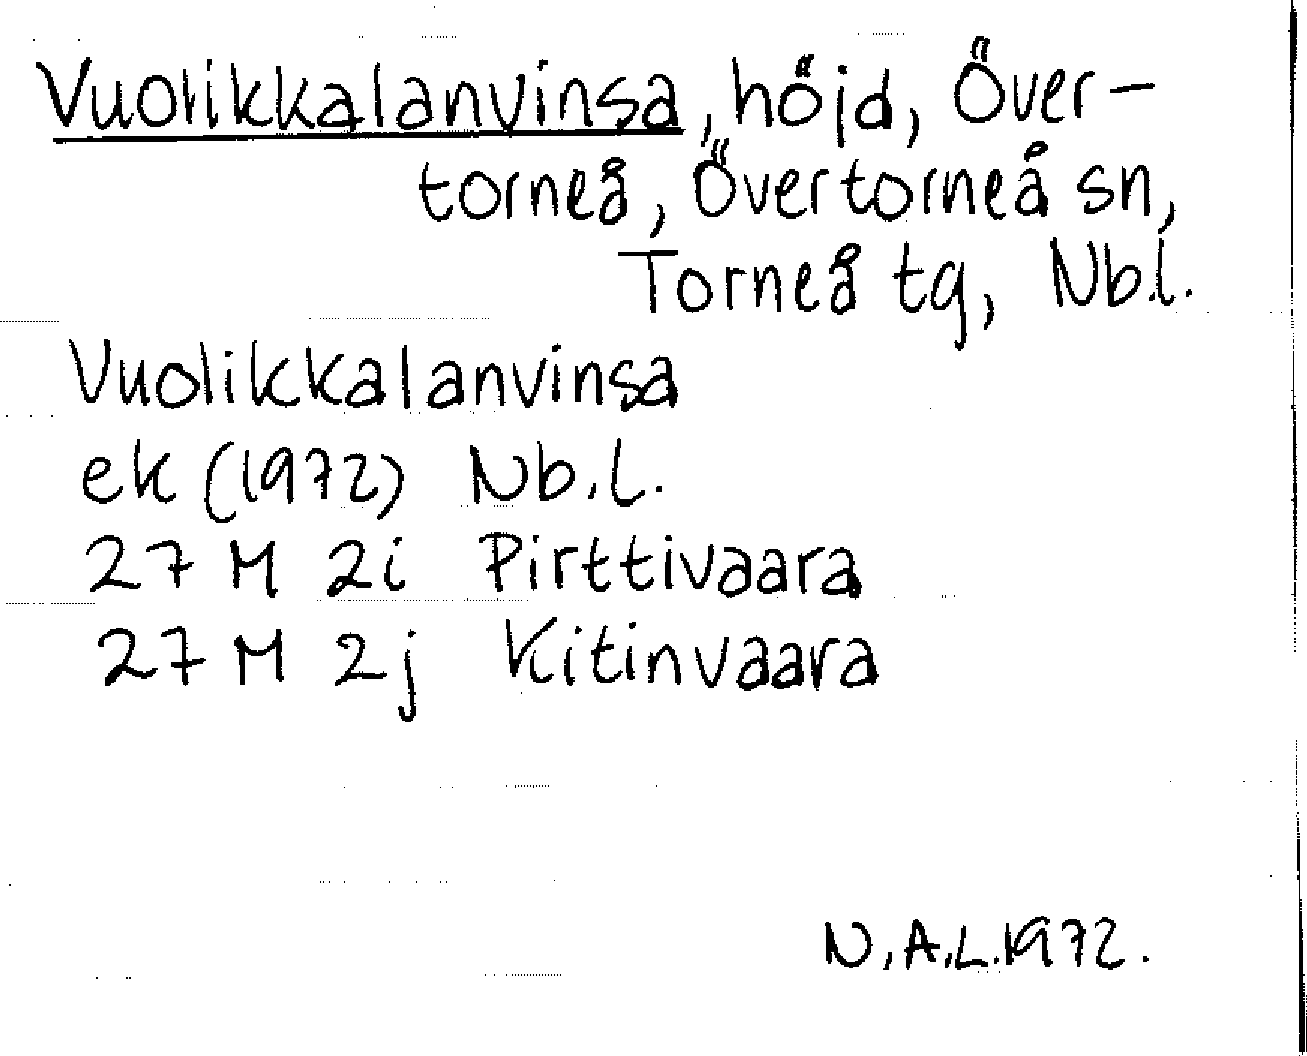 Vuolikkalanvinsa, höjd, Över-
torneå, Övertorneå sn,
Torneå tg, Nb.l.
Vuolikkalanvinsa
ek (1972) Nb.l.
27 M 2i Pirttivaara
27 M 2j Kitinvaara
N.A.L. 1972.